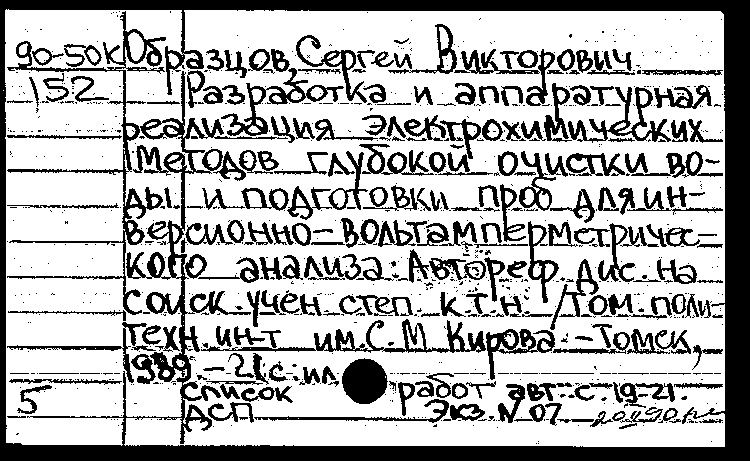 90-50к Образцов, Сергей Викторович
152 Разработка и аппаратурная
реализация электрохимических
методов глубокой очистки во-
ды и подготовки проб для ин-
версионно-вольтамперметричес-
кого анализа: Автореф. дис. на
соиск. учен. степ. к.т.н. / Том. поли-
техн. ин-т им. С.М Кирова. - Томск,
1989. - 21с. ил
5 Список работ авт.: с. 19-21.
ДСП Экз. N 07.